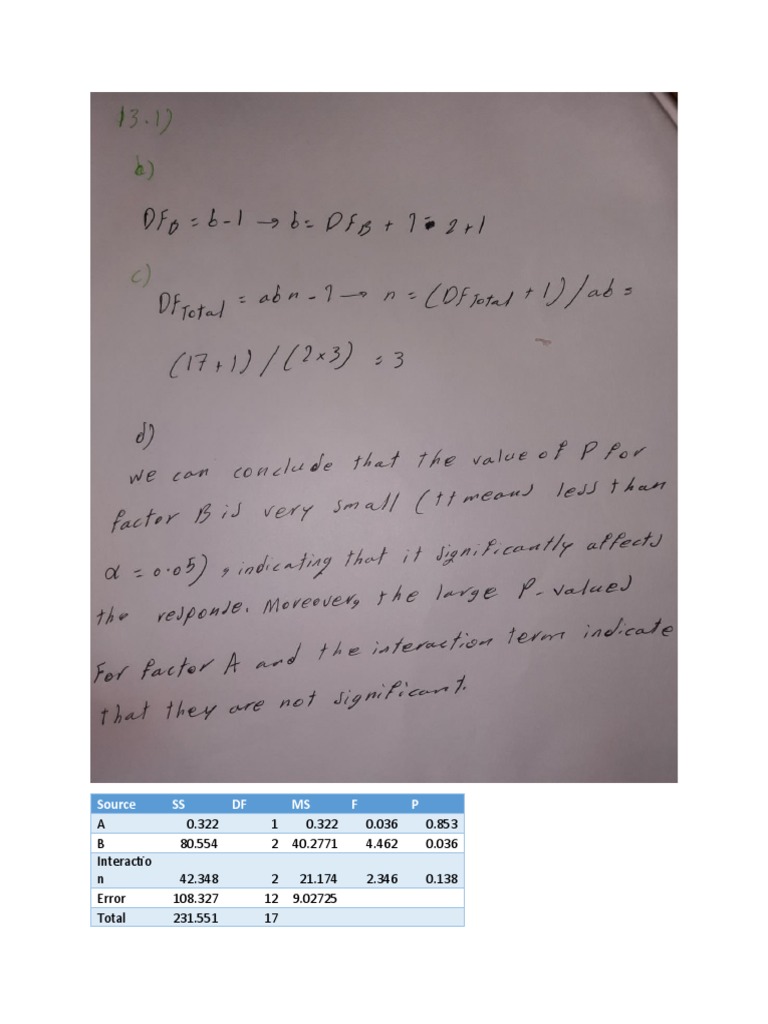 13.1)
b)
DF_B = b-1 → b = DF_B + 1 = 2+1
c)
DF_Total = abn - 1 → n = (DF_Total + 1)/ab =
(17+1)/(2×3) = 3
d)
we can conclude that the value of P for
factor B is very small (It means less than
α = 0.05), indicating that it significantly affects
the response. Moreover, the large P-values
For factor A and the interaction term indicate
that they are not significant.
Source SS DF MS F P
A 0.322 1 0.322 0.036 0.853
B 80.554 2 40.2771 4.462 0.036
Interactio
n 42.348 2 21.174 2.346 0.138
Error 108.327 12 9.02725
Total 231.551 17